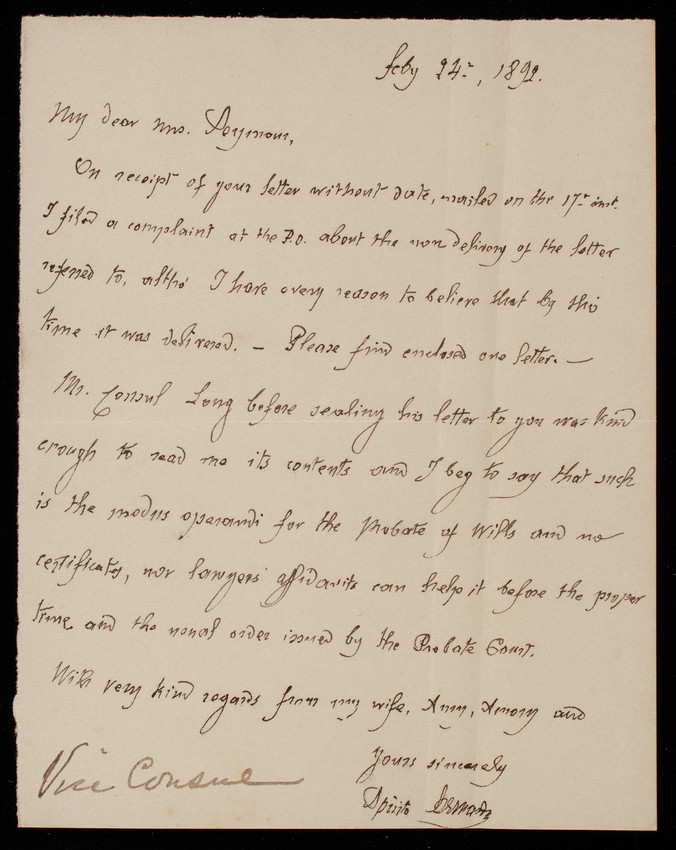 Feby 24th, 1892.
My dear Mrs. Seymour,
On receipt of your letter without date, mailed on the 17th inst.
I filed a complaint at the P.O. about the non delivery of the letter
referred to, altho' I have every reason to believe that by this
time it was delivered. — Please find enclosed one letter. —
Mr. Consul Long before sealing his letter to you was kind
enough to read me its contents and I beg to say that such
is the modus operandi for the Probate of Wills and no
certificates, nor lawyers' affidavits can help it before the proper
time and the usual order issued by the Probate Court.
With very kind regards from my wife, Amy, Amory and
Yours sincerely
Spirito Bernardi
Vice Consul